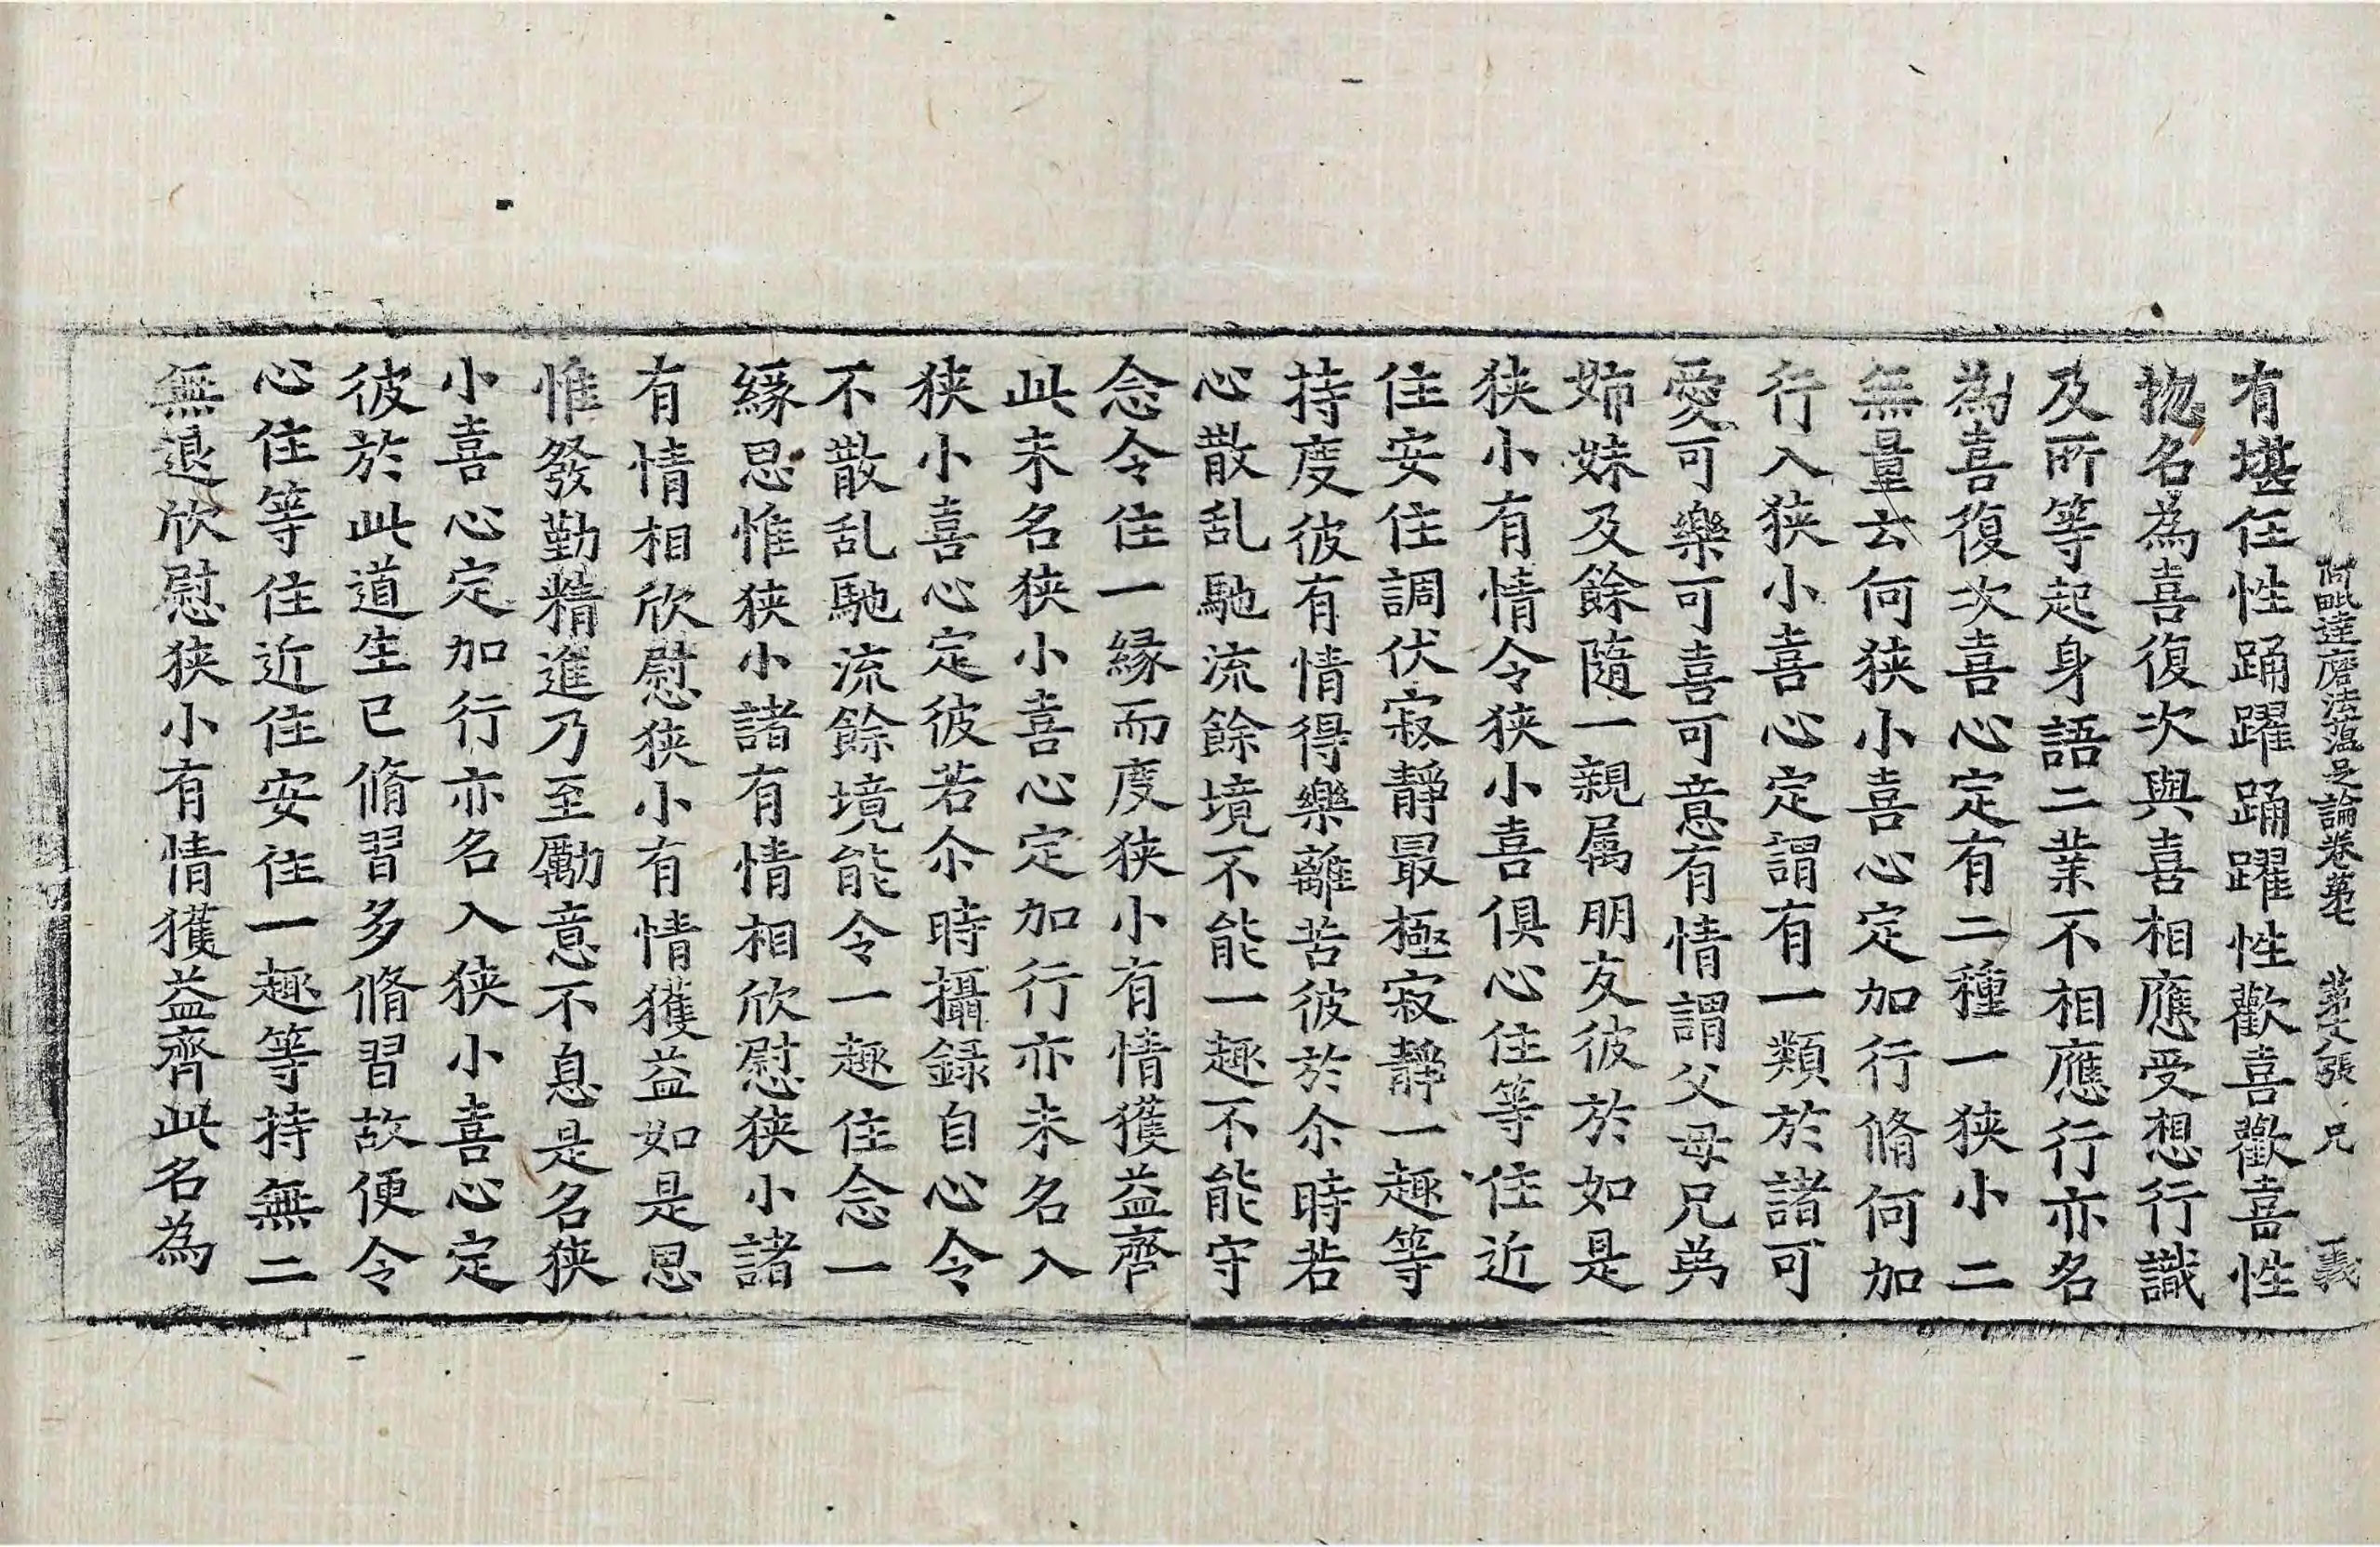 阿毗達磨法蘊足論卷第七　第六張　兄　義
有堪任性踊躍踊躍性歡喜歡喜性
揔名為喜復次與喜相應受想行識
及所等起身語二業不相應行亦名
為喜復次喜心定有二種一狹小二
無量云何狹小喜心定加行脩何加
行入狹小喜心定謂有一類於諸可
愛可樂可喜可意有情謂父母兄弟
姉妹及餘隨一親属朋友彼於如是
狹小有情令狹小喜俱心住等住近
住安住調伏寂靜最極寂靜一趣等
持度彼有情得樂離苦彼於尒時若
心散乱馳流餘境不能一趣不能守
念令住一緣而度狹小有情獲益齊
此未名狹小喜心定加行亦未名入
狹小喜心定彼若尒時攝錄自心令
不散乱馳流餘境能令一趣住念一
緣思惟狹小諸有情相欣慰狹小諸
有情相欣慰狹小有情獲益如是思
惟發勤精進乃至勵意不息是名狹
小喜心定加行亦名入狹小喜心定
彼於此道生已脩習多脩習故便令
心住等住近住安住一趣等持無二
無退欣慰狹小有情獲益齊此名為